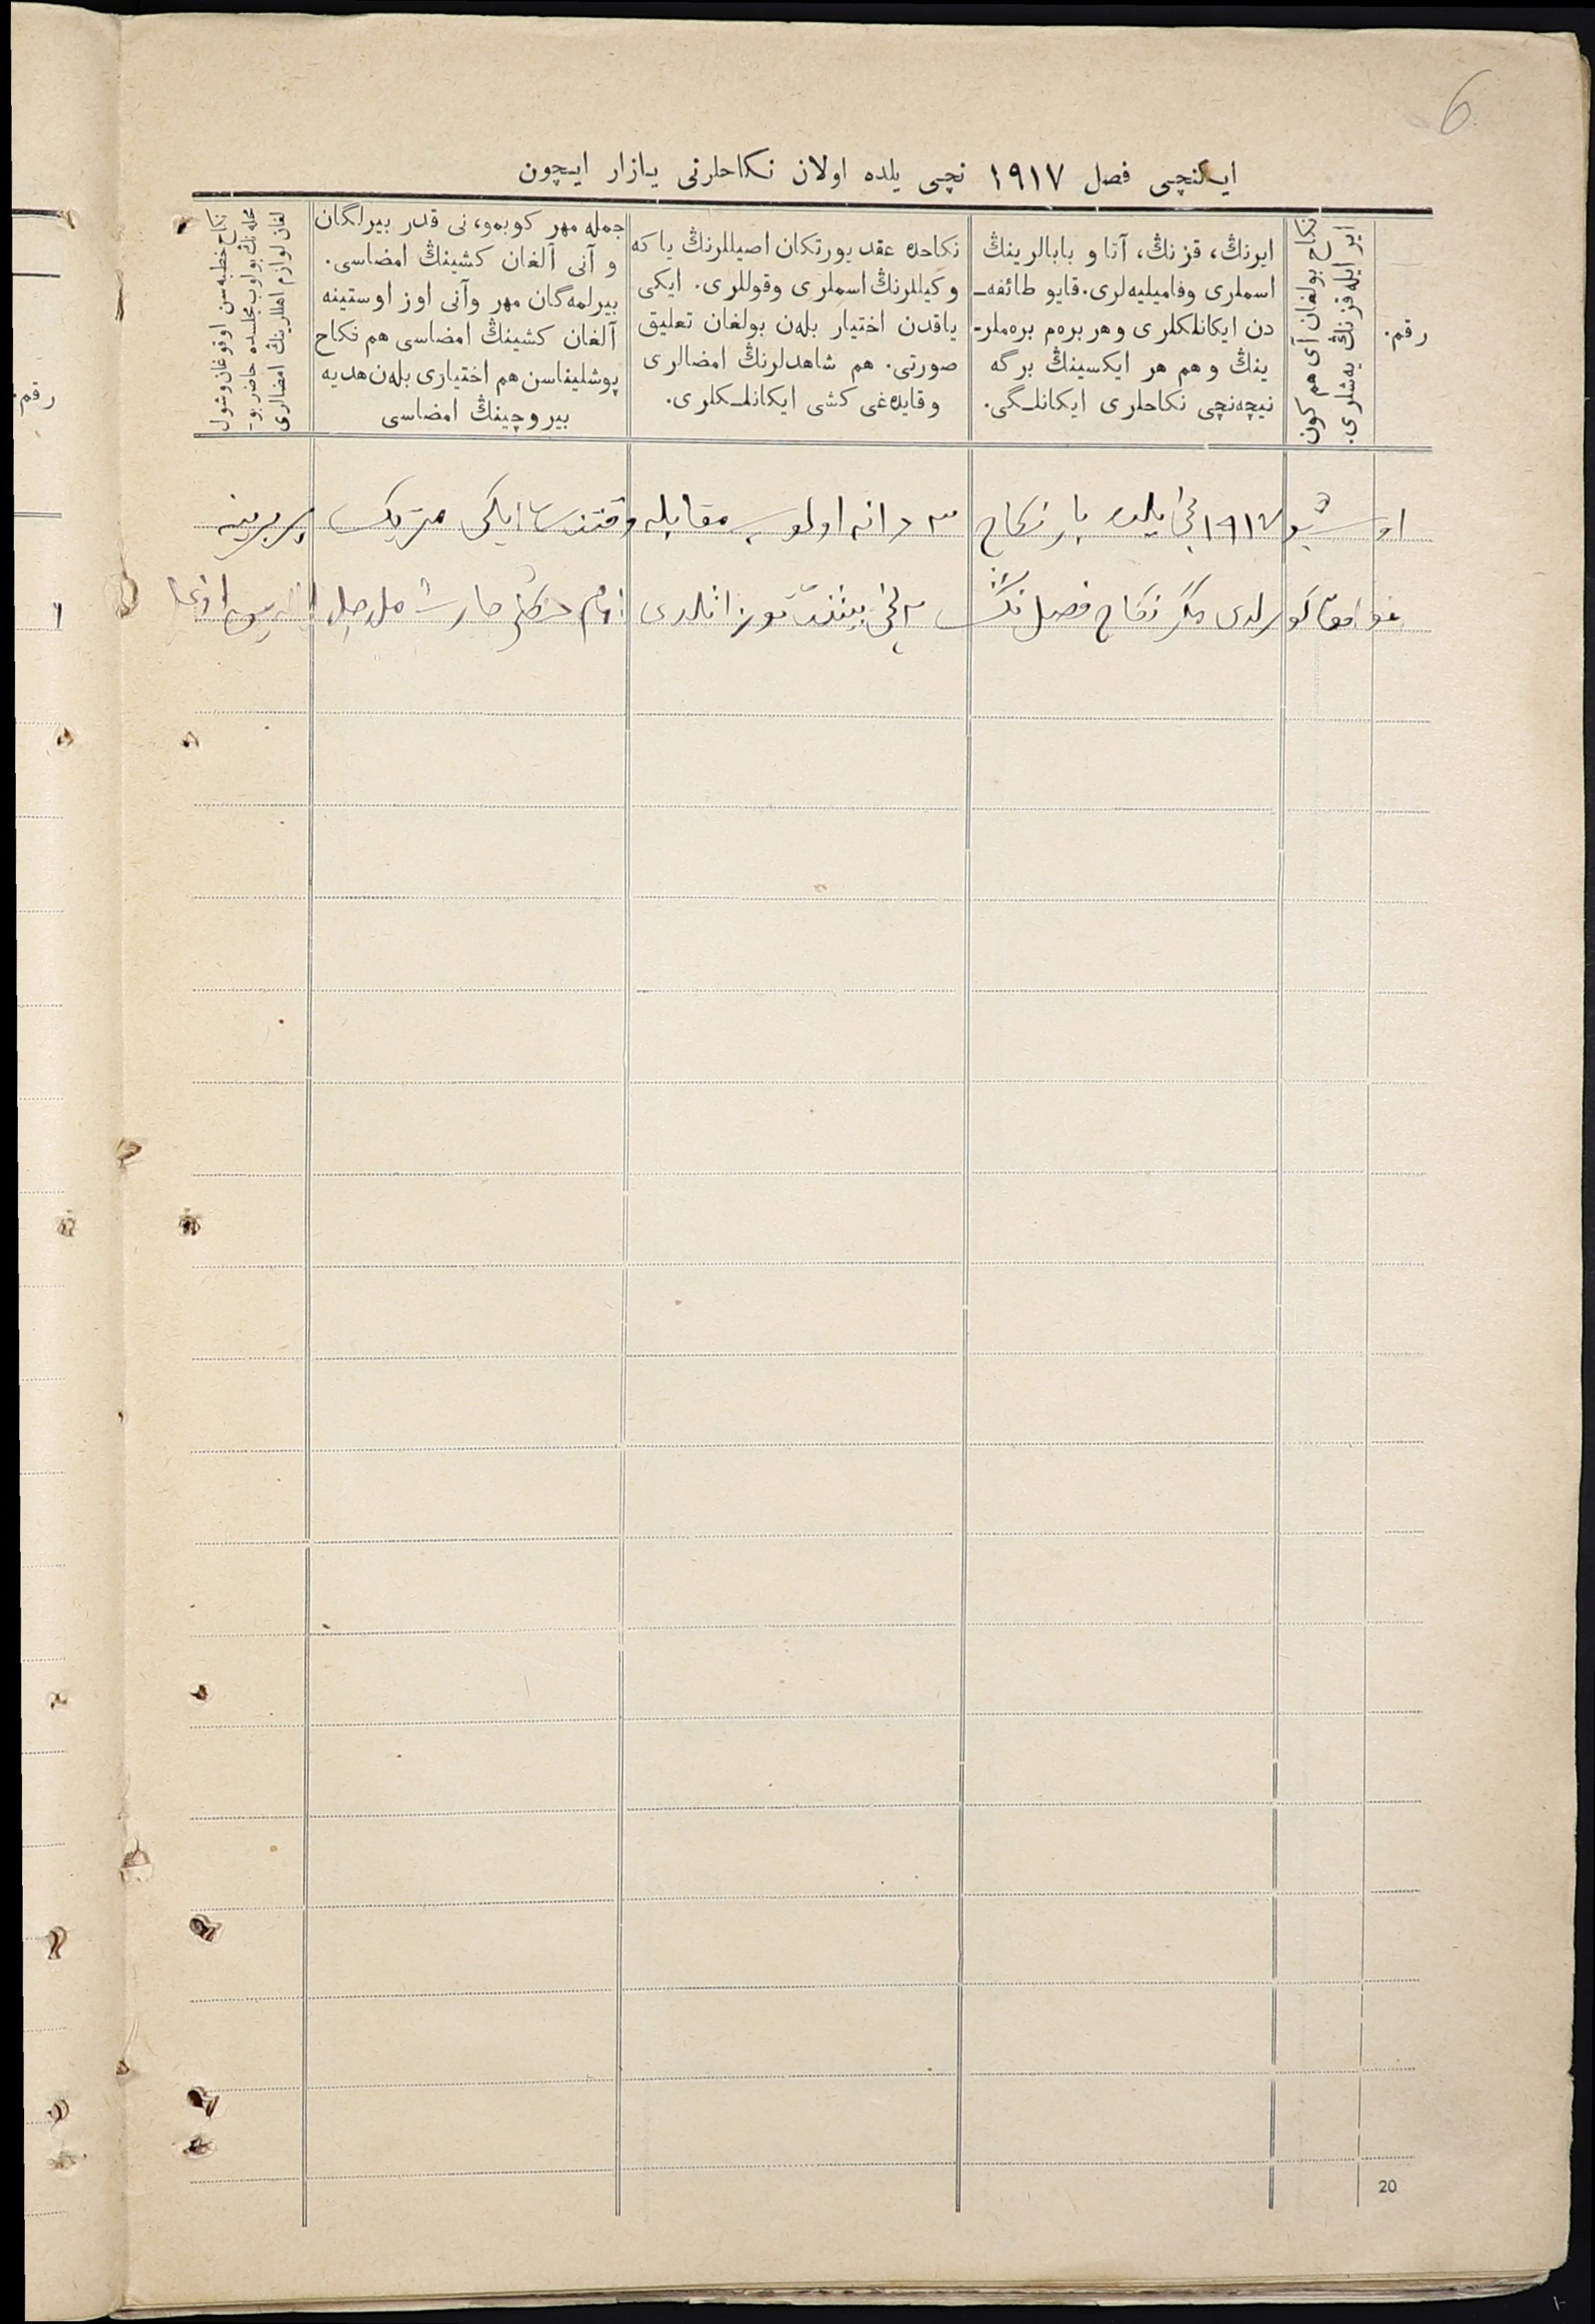 6
ایکنچی فصل ۱۹۱۷ نچی یلده اولان نکاحلرنی یازار ایچون
رقم.
نکاح بولغان آی هم کون
ایر ایله قزنڭ یەشلری.
ایرنڭ، قزنڭ، آتا و بابالرینڭ
اسملری وفامیلیەلری. قایو طائفه‌ـ
دن ایکانلکلری و هر برەم برەملرـ
ینڭ و هم هر ایکسینڭ برگه
نیچەنچی نکاحلری ایکانلـگی.
نکاحده عقد یورتکان اصیللرنڭ یا که
وکیللرنڭ اسملری وقوللری. ایکی
یاقدن اختیار بلەن بولغان تعلیق
صورتی. هم شاهدلرنڭ امضالری
و قایدەغی کشی ایکانلـکلری.
جمله مهر کوبمو، نی قدر بیرلگان
و آنی آلغان کشینڭ امضاسی.
بیرلمەگان مهر وآنی اوز اوستینه
آلغان کشینڭ امضاسی هم نکاح
پوشلیناسن هم اختیاری بلەن هدیه
بیروچینڭ امضاسی
نکاح خطبه‌سن اوقوغان وشول
محله‌نڭ بولوب مجلسده حاضر بوـ
لغان لوازم اهللرینڭ امضالری
اوشبو ۱۹۱۷ نچی یلده بار نکاح ۳ دانه اولوب مقابله وقتنده ایکی متریک بربرینه
کورلدی مگر نکاح فصل نڭ ۳ نچی
رقم.
20